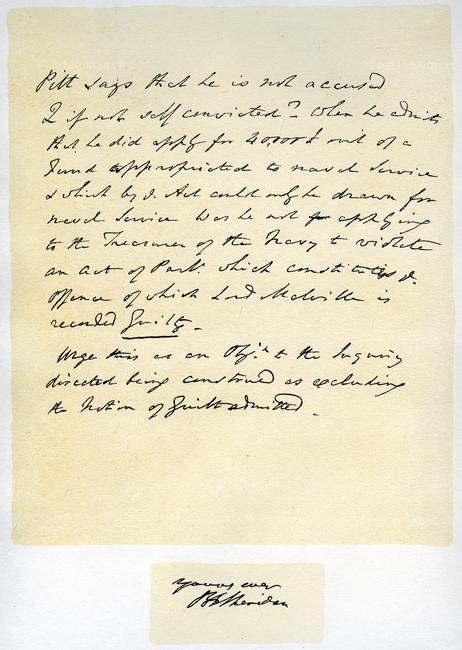 Pitt says that he is not accused
Q if not self convicted? When he admits
that he did apply for 40000£ out of a
Fund appropriated to naval Service
& which by ye. Act could only be drawn for
naval Service was he not applying
to the Treasurer of the Navy to violate
an act of Parlt. which constitutes ye.
offence of which Lord Melville is
recorded Guilty.
Urge this as an Objn. to the Inquiry
directed being construed as excluding
the Notion of Guilt admitted.
yours ever
RBSheridan